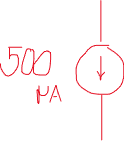 500
µA